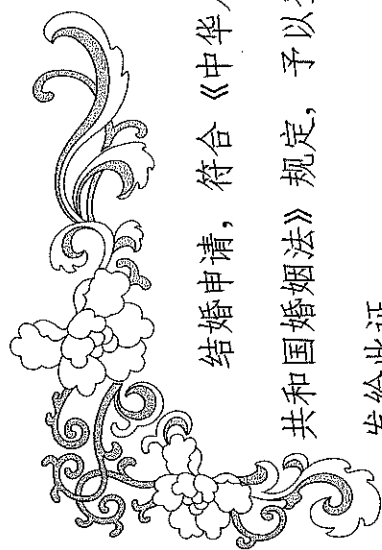 结婚申请，符合《中华
共和国婚姻法》规定，予以
发给此证